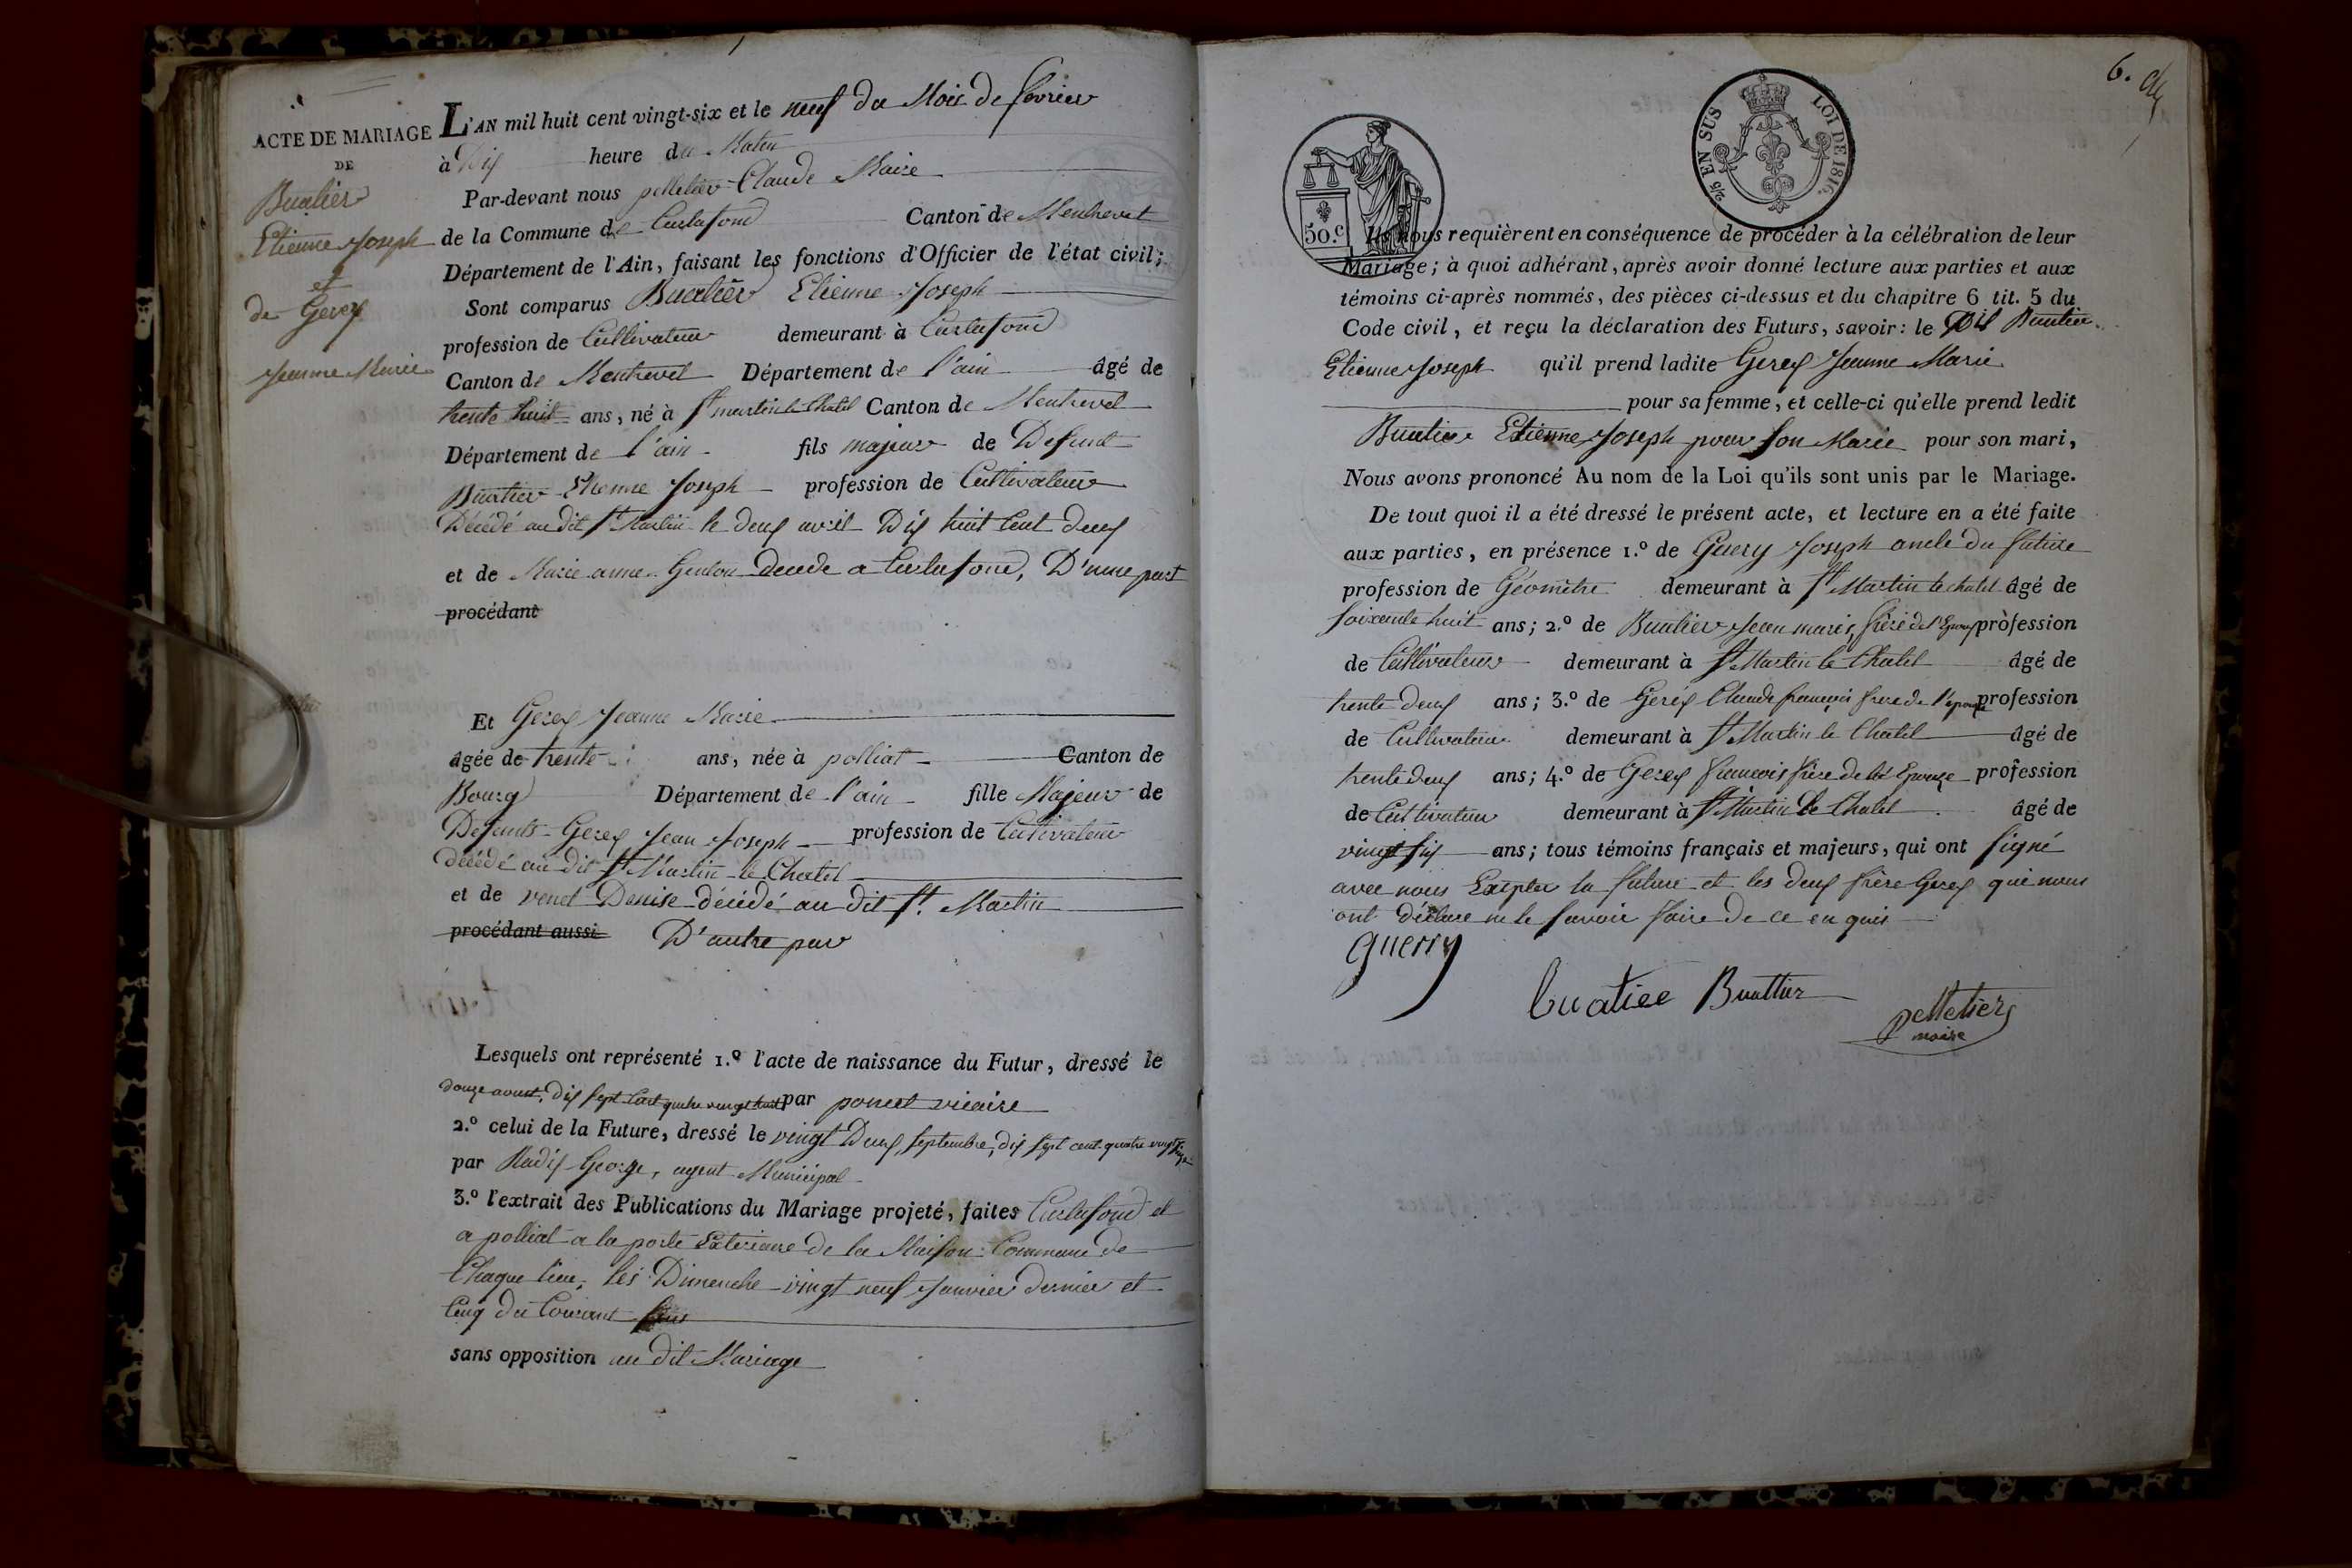 ACTE DE MARIAGE
DE
Buatier
Etienne Joseph
et
de Gerex
Jeanne Marie
L'AN mil huit cent vingt-six et le neuf du Mois de fevrier
à Dix heure du Matin
Par-devant nous pelletier Claude Maire
de la Commune de Curtafond Canton de Montrevel
Département de l'Ain, faisant les fonctions d'Officier de l'état civil;
Sont comparus Buatier Etienne Joseph
profession de Cultivateur demeurant à Curtafond
Canton de Montrevel Département de l'ain âgé de
trente huit ans, né à St martin le Chatel Canton de Montrevel
Département de l'ain fils majeur de Defunt
Buatier Etienne Joseph profession de Cultivateur
Décédé au dit St Martin le deux avril Dix huit Cent deux
et de Marie anne decede a Curtafond, D'une part
procédant
Et Gerex Jeanne Marie
âgée de trente ans, née à polliat Canton de
Bourg Département de l'ain fille Majeur de
Defunts Gerex Jean Joseph profession de Cultivateur
décédé au dit St Martin le Chatel
et de venet Denise décédé au dit St. Martin
procédant aussi D'autre par
Lesquels ont représenté 1.º l'acte de naissance du Futur, dressé le
douze aoust, dix sept Cent quatre vingt huit par poncet vicaire
2.º celui de la Future, dressé le vingt Deux Septembre, dix sept cent quatre vingt
par Radix George, agent Municipal
3.º l'extrait des Publications du Mariage projeté, faites Curtafond et
a polliat a la porte Exterieure de la Maison Commune de
Chaque lieu, les Dimenche vingt neuf Janvier dernier et
Cinq du Courant
sans opposition au dit Mariage
6.
50.c
2/5 EN SUS
LOI DE 1816.
Ils nous requièrent en conséquence de procéder à la célébration de leur
Mariage; à quoi adhérant, après avoir donné lecture aux parties et aux
témoins ci-après nommés, des pièces ci-dessus et du chapitre 6 tit. 5 du
Code civil, et reçu la déclaration des Futurs, savoir: le Dit Buatier
Etienne Joseph qu'il prend ladite Gerex Jeanne Marie
pour sa femme, et celle-ci qu'elle prend ledit
Buatier Etienne Joseph pour son Marie pour son mari,
Nous avons prononcé Au nom de la Loi qu'ils sont unis par le Mariage.
De tout quoi il a été dressé le présent acte, et lecture en a été faite
aux parties, en présence 1.º de Guery Joseph oncle du future
profession de Géomètre demeurant à St Martin le chatel âgé de
soixente huit ans; 2.º de Buatier Jean marie, frère de l'Epoux profession
de Cultivateur demeurant à St Martin le Chatel âgé de
trente deux ans; 3.º de Gerex Claude francois frere de l'epouse profession
de Cultivateur demeurant à St Martin le Chatel âgé de
trente deux ans; 4.º de Gerex francois frère de la Epouze profession
de Cultivateur demeurant à St Martin le Chatel âgé de
vingt six ans; tous témoins français et majeurs, qui ont signé
avec nous Exepter la future et les deux frère Gerex qui nous
ont déclare ne le savoir faire de ce en quis
guerry
buatiee Buattier
pelletier
maire